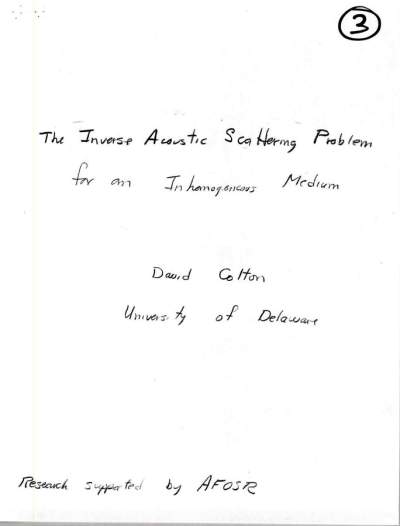 3
The Inverse Acoustic Scattering Problem
for an Inhomogeneous Medium
David Colton
University of Delaware
Research supported by AFOSR